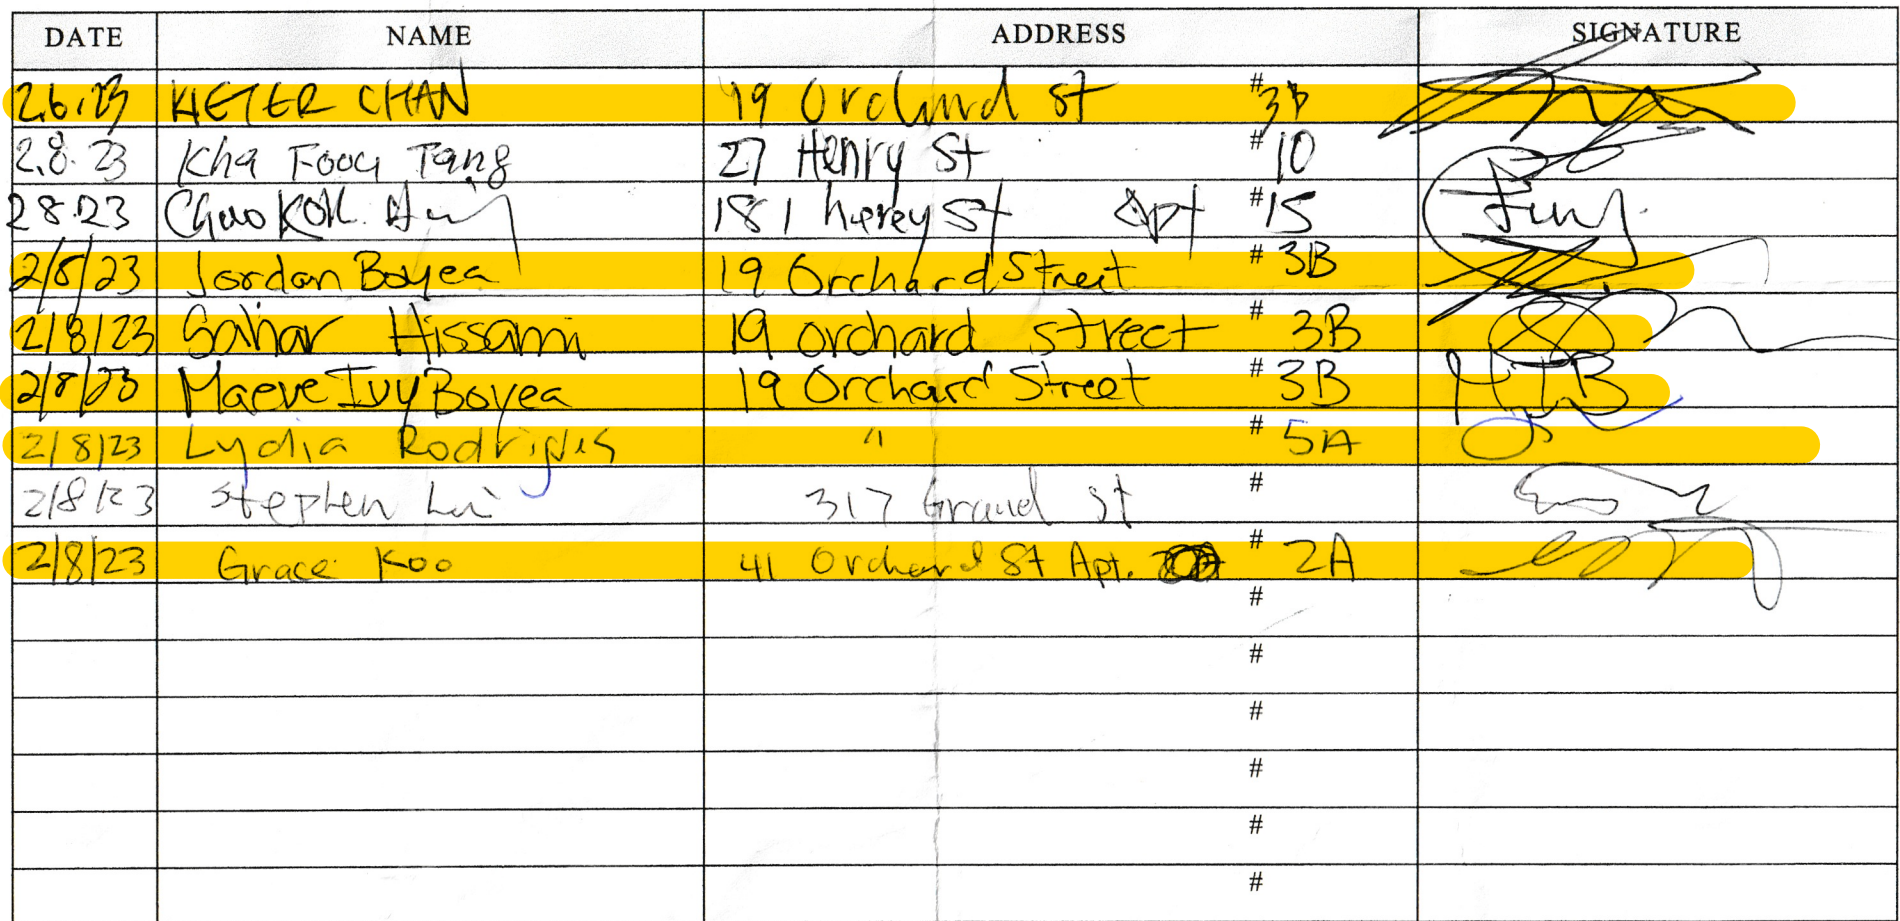 DATE NAME ADDRESS SIGNATURE
2.6.23 CHAN 19 Orchard St #3B
2.8.23 Kha Foou Tang 27 Henry St #10
2.8.23 Chao Kok 181 Henry St Apt #15
2/8/23 Jordan Boyea 19 Orchard Street #3B
2/8/23 Sahar Hissami 19 orchard street #3B
2/8/23 Maeve Ivy Boyea 19 Orchard Street #3B
2/8/23 Lydia Rodrigues " #5A
2/8/23 Stephen Lui 317 Grand St #
2/8/23 Grace Koo 41 Orchard St Apt. #2A
#
#
#
#
#
#